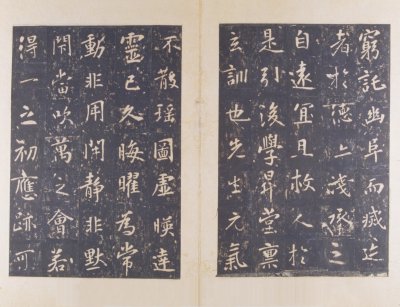 窮託幽阜而藏迹
者於德上或薄之
自遠宜且救人於
是引後學昇堂禀
玄訓也先生元氣
不散瑶圖虛暎達
靈已久晦曜為常
動非用閑靜非默
閇當吹萬之會若
得一之初應跡可